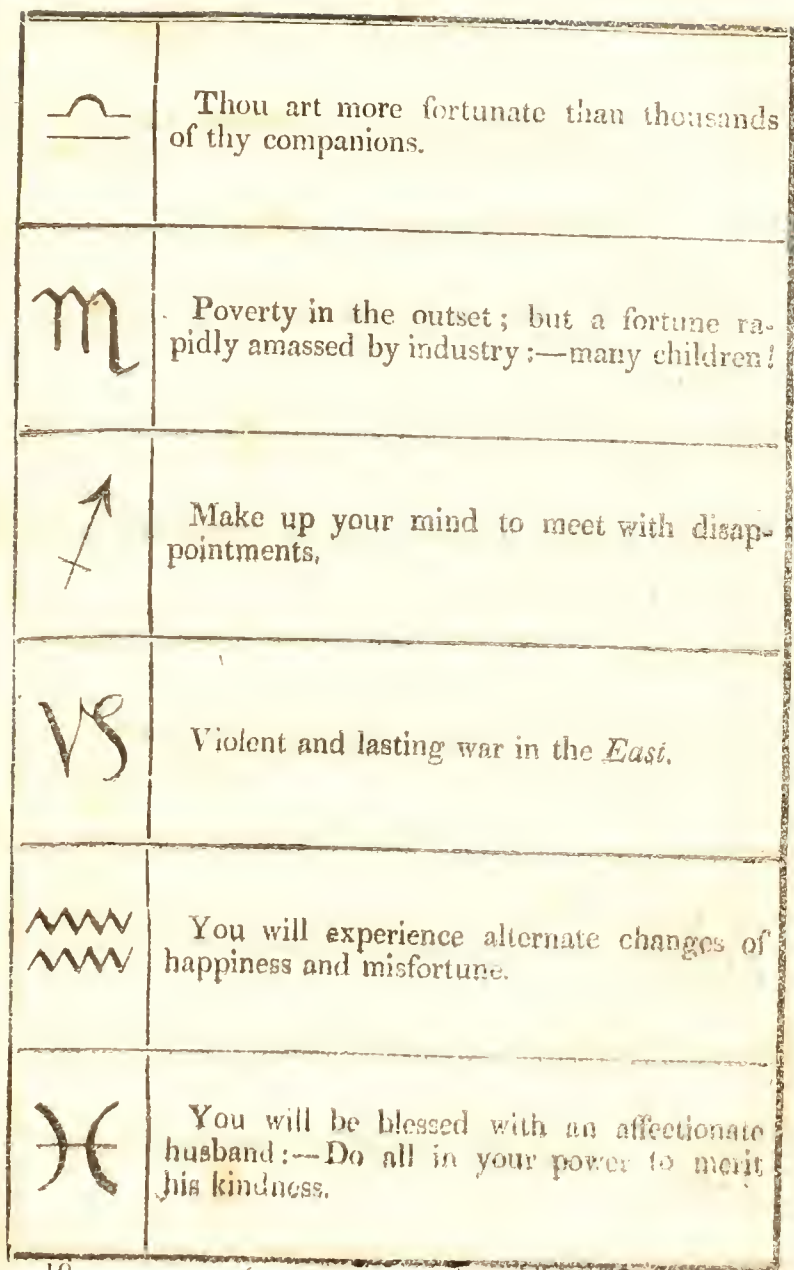 ♎ Thou art more fortunate than thousands
of thy companions.
♏ Poverty in the outset; but a fortune ra-
pidly amassed by industry:—many children!
♐ Make up your mind to meet with disap-
pointments,
♑ Violent and lasting war in the East.
♒ You will experience alternate changes of
happiness and misfortune.
♓ You will be blessed with an affectionate
husband:—Do all in your power to merit
his kindness.